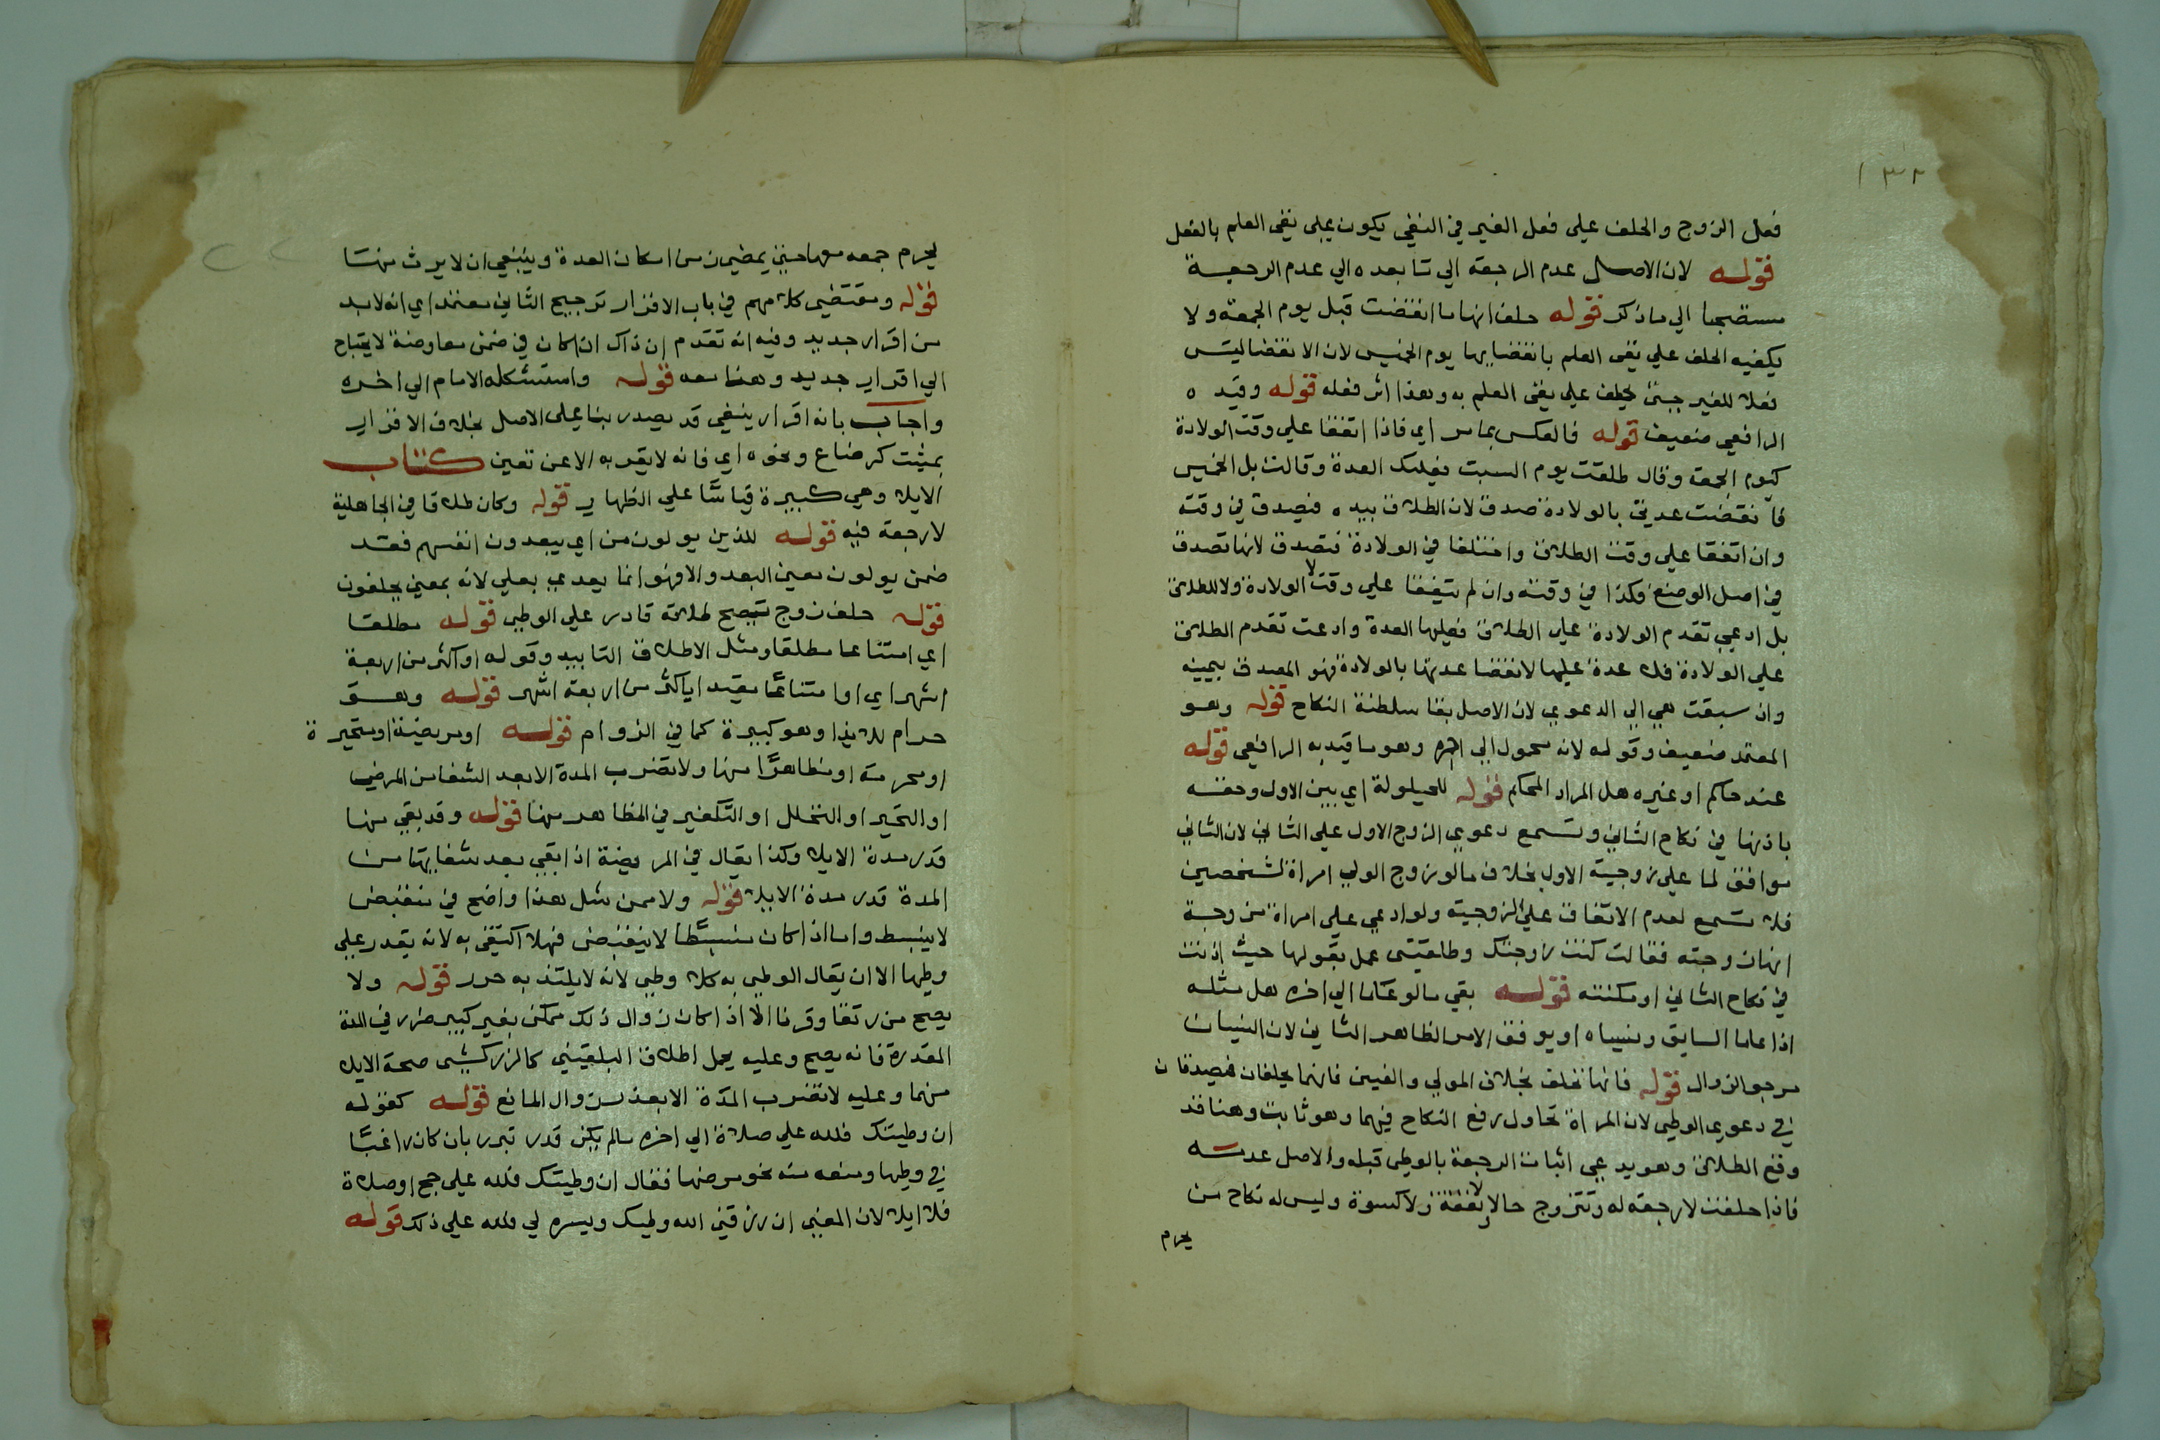 ١٣٢
فعل الزوج والحلف على فعل الغير في النفي يكون على نفي العلم بالفعل
قوله لان الاصل عدم الرجعة الي تا بعده الي عدم الرجعية
مستصحبا الي ما ذكر قوله حلف انها ما انقضت قبل يوم الجمعة ولا
يكفيه الحلف علي نفي العلم بانقضايها يوم الخميس لان الانقضا ليس
فعلا للغير حتي يحلف علي نفي العلم به وهذا اثر فعله قوله وقيده
الرافعي ضعيف قوله فالعكس بما مر اي فاذا اتفقا علي وقت الولادة
كيوم الجمعة وقال طلقت يوم السبت فعليك العدة وقالت بل الخميس
فانقضت عدتي بالولادة صدق لان الطلاق بيده فيصدق في وقته
وان اتفقا علي وقت الطلاق واختلفا في الولادة فتصدق لانها تصدق
في اصل الوضع فكذا في وقته وان لم يتفقا علي وقت لا الولادة ولا للطلاق
بل ادعي تقدم الولادة علي الطلاق فعليها العدة وادعت تقدم الطلاق
علي الولادة فلا عدة عليها لانقضا عدتها بالولادة فهو المصدق بيمينه
وان سبقت هي الي الدعوي لان الاصل بقا سلطنة النكاح قوله وهو
المعتمد ضعيف وقوله لانه محمول الي اخره وهو ما قيد به الرافعي قوله
عند حاكم او غيره هل المراد المحكم قوله للحيلولة اي بين الاول وحقه
باذنها في نكاح الثاني وتسمع دعوي الزوج الاول علي الثاني لان الثاني
موافق لما علي زوجية الاول بخلاف ما لو زوج الولي امراة لشخصين
فلا تسمع لعدم الاتفاق علي الزوجية ولو ادعي علي امراة مزوجة
انها زوجته فقالت كنت زوجتك وطلقتني عمل بقولها حيث اذنت
في نكاح الثاني او مكنته قوله بقي ما لو علما الي اخره هل مثله
اذا علما السابق ونسياه او يوفق الامر الظاهر الثاني لان النسيان
مرجو الزوال قوله فانها تحلف بخلاف المولي والعنين فانهما يحلفان فيصدقان
في دعوي الوطي لان المراة تحاول رفع النكاح فيهما وهو ثابت وهنا قد
وقع الطلاق وهو يدعي اثبات الرجعة بالوطي قبله والاصل عدمه
فاذا حلفت لا رجعة له وتتزوج حالا ولا نفقة ولا كسوة وليس له نكاح من
يحرم
يحرم جمعه معها حينئذ يمضي زمن امكان العدة وينبغي ان لا يرث منها
قوله ومقتضي كلامهم في باب الاقرار ترجيح الثاني معتمد اي انه لا بد
من اقرار جديد وفيه انه تقدم ان ذاك ان كان في ضمن معاوضة لا يحتاج
الي اقرار جديد وهنا معه قوله واستشكله الامام الي اخره
واجاب بانه اقرار ينفي قد يصدر بنا علي الاصل بخلاف الاقرار
بمثبت كرضاع ونحوه اي فانه لا يقر به الا عن تعين كتاب
الايلا وهي كبيرة قياسا علي الظهار قوله وكان طلاقا في الجاهلية
لا رجعة فيه قوله للذين يولون من اي يبعدون انفسهم فقد
ضمن يولون معني البعد والا فهو انما يعدي بعلي لانه بمعني يحلفون
قوله حلف زوج يصح طلاقه قادر علي الوطي قوله مطلقا
اي امتناعا مطلقا ومثل الاطلاق التابيد وقوله او اكثر من اربعة
اشهر اي او امتناعا مقيدا باكثر من اربعة اشهر قوله وهو
حرام للايذا وهو كبيرة كما في الزوام قوله او مريضة او متحيرة
او محرمة او مظاهرا منها ولا تضرب المدة الا بعد الشفا من المرض
او التحير او التحلل او التكفير في المظاهر منها قوله وقد بقي منها
قدر مدة الايلا وكذا يقال في المريضة اذا بقي بعد شفايها من
المدة قدر مدة الايلا قوله ولا ممن شل هذا واضح في منقبض
لا ينبسط واما اذا كان منبسطا لا ينقبض فهلا اكتفي به لانه يقدر علي
وطيها الا ان يقال الوطي به كلا وطي لانه لا يلتذ به حرر قوله ولا
يصح من رتقا وقرنا الا اذا كان زوال ذلك ممكن بغير كبير ضرر في المدة
المقدرة فانه يصح وعليه يحمل اطلاق البلقيني كالزركشي صحة الايلا
منهما وعليه لا تضرب المدة الا بعد زوال المانع قوله كقوله
ان وطيتك فلله علي صلاة الي اخره ما لم يكن قدر تبرر بان كان راغبا
في وطيها ومنعه منه نحو مرضها فقال ان وطيتك فلله علي حج او صلاة
فلا ايلا لان المعني ان رزقني الله وطيك ويسره لي فلله علي ذلك قوله